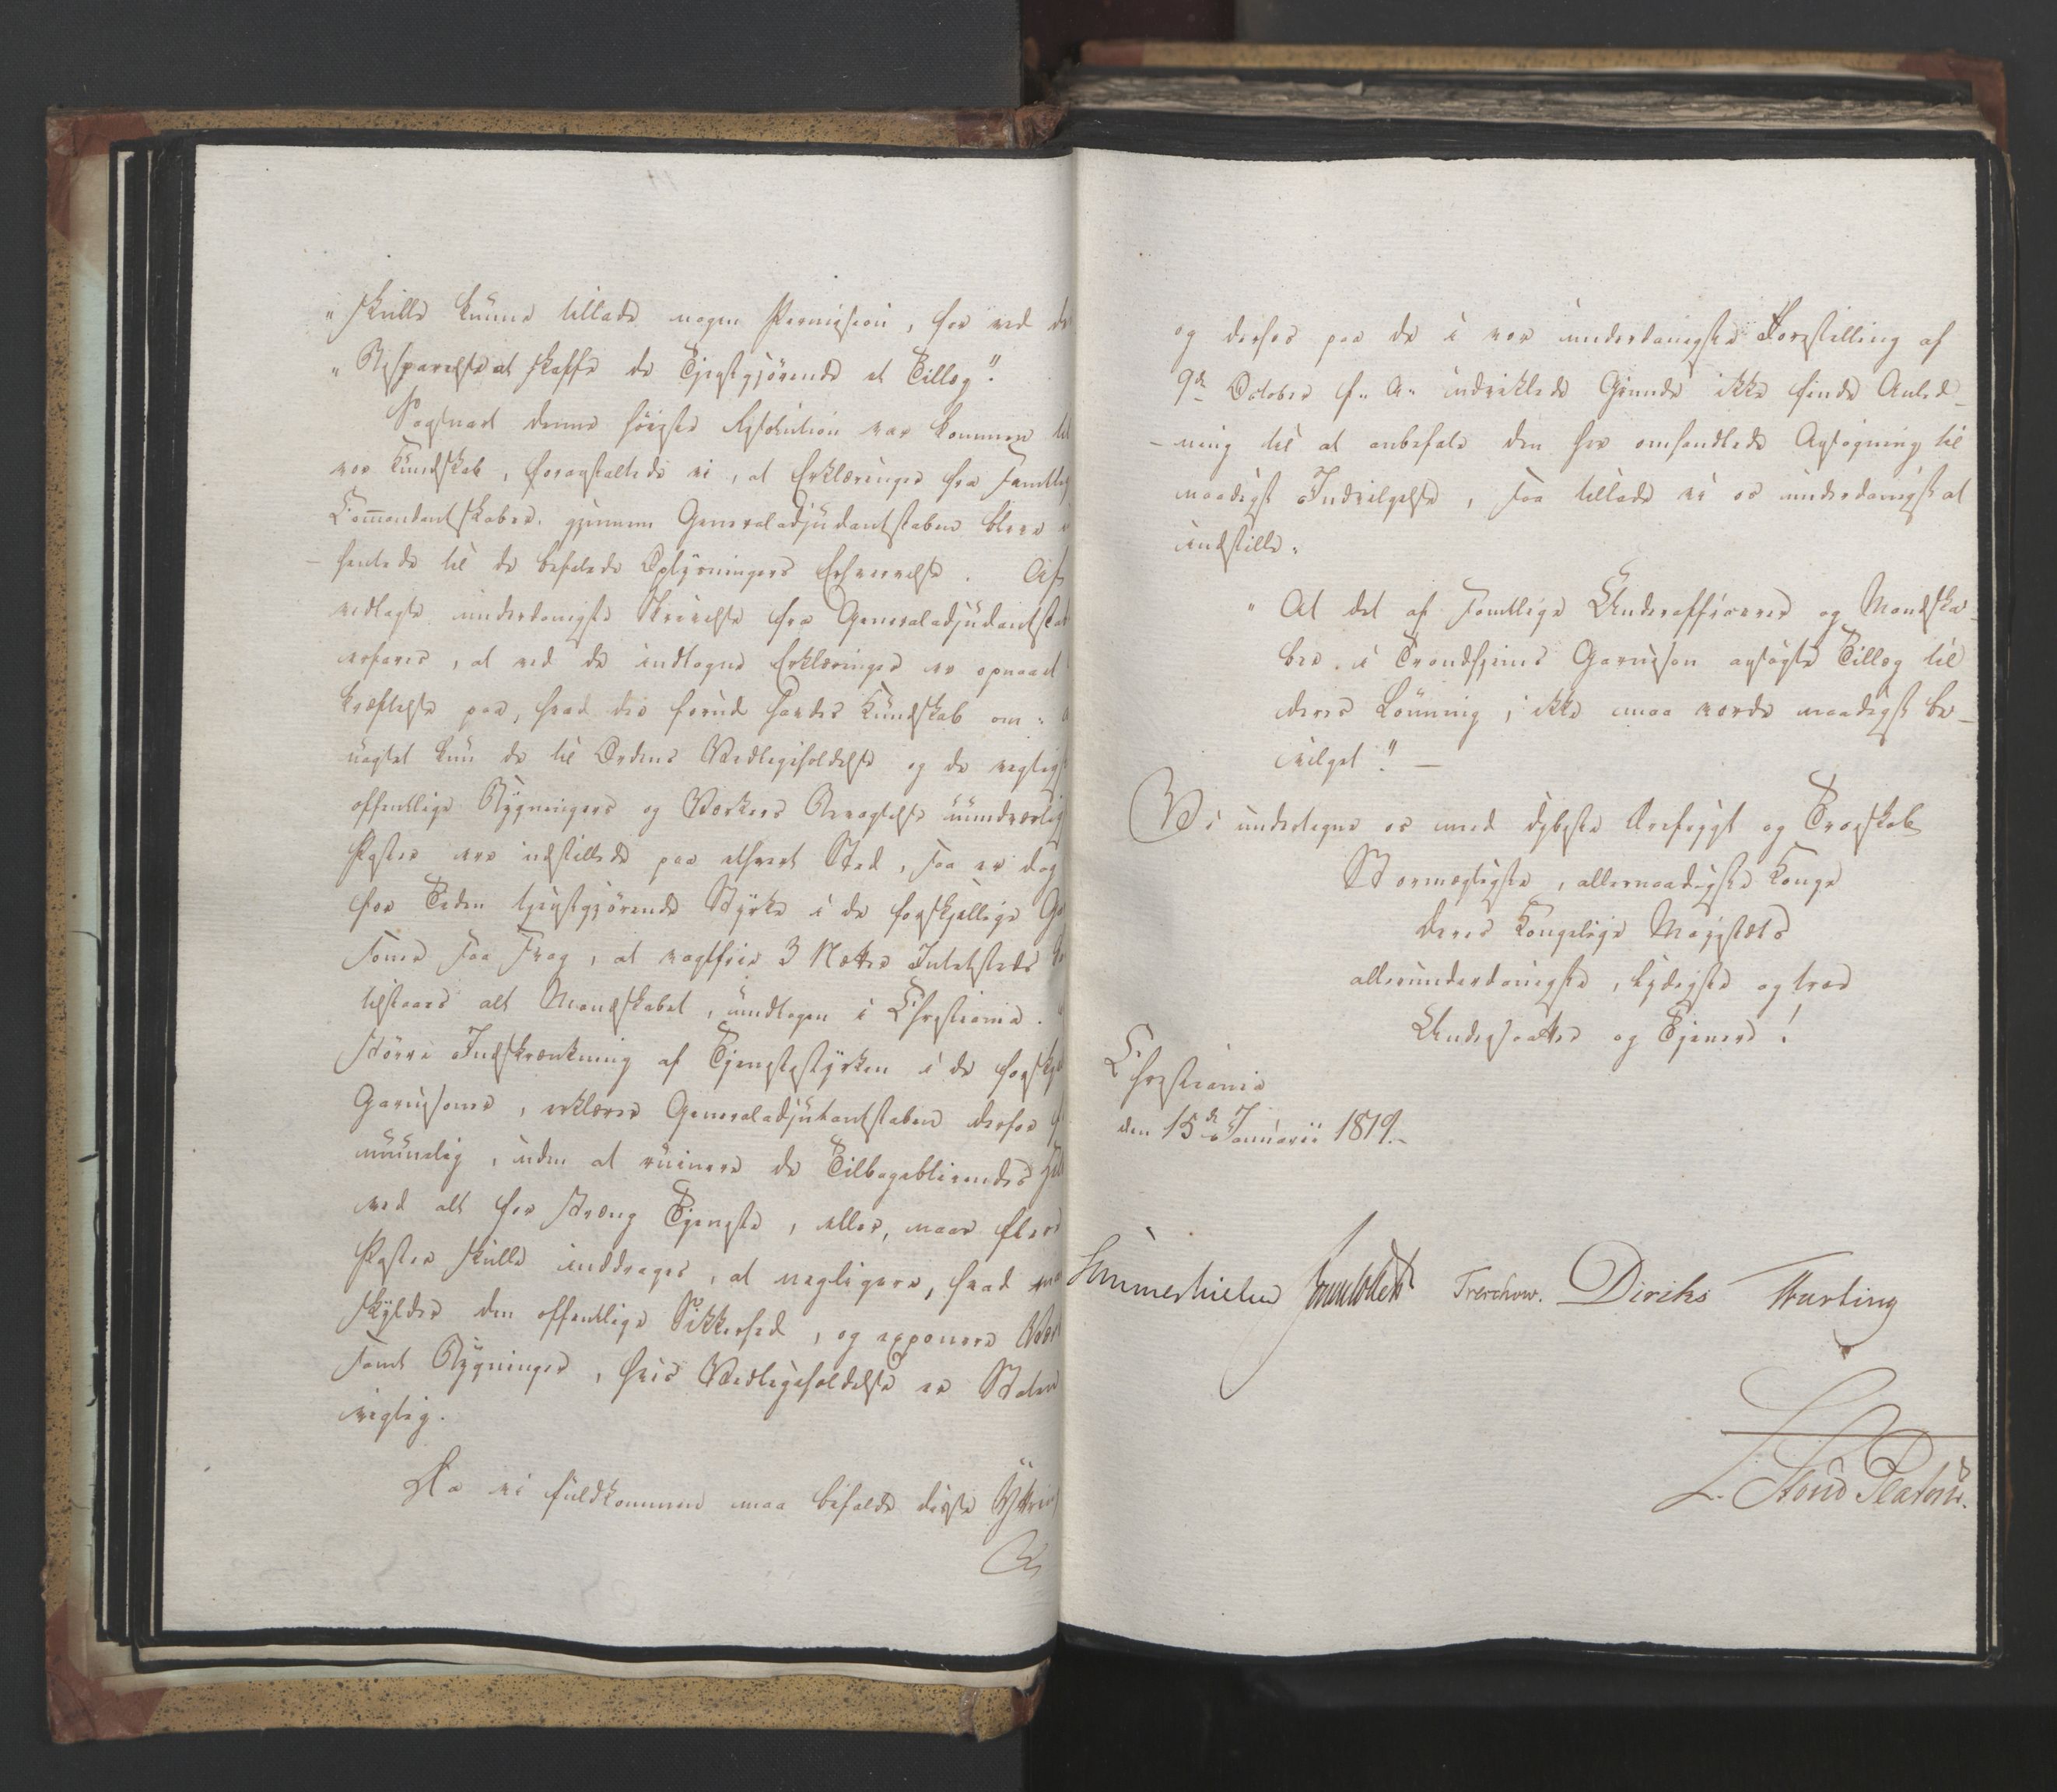 „skulle kunne tillade nogen Permission, for ved de
„Besparelse at skaffe de Tjenstgjörende et Tillæg.“
Saasnart denne höieste Resolution var kommen til
vor Kundskab, foranstaltede vi, at Erklæringer fra samtlige
Commandantskaber, gjennem Generaladjudantstaben bleve
hentede til de befalede Oplysningers Erhvervelse. Af
vedlagte underdanigste Skrivelse fra Generaladjudantstab
erfares, at ved de indtagne Erklæringer er opnaaet
kræftelse paa, hvad der forud havdes Kundskab om:
uagtet kun de til Ordens Vedligeholdelse og de vigtigste
offentlige Bygningers og Værkers Bevogtelse uundværlige
Poster ere udstillede paa ethvert Sted, saa er dog
for Tiden tjenstgjörende Styrke i de forskjellige Gar
soner saa svag, at vagtfrie 3 Nætter Intetsteds
tilstaaes alt Mandskabet, undtagen i Christiania.
större Indskrænkning af Tjenestestyrken i de forskjel
Garnisoner, erklærer Generaladjutantstaben derfor
muuelig, uden at ruinere de Tilbageblivendes Hel
ved alt for stræng Tjeneste, eller, naar flere
Poster skulle inddrages, at negligere, hvad man
skylder den offentlige Sikkerhed, og exponere Vær
samt Bygninger, hvis Vedligeholdelse er Staten
vigtig.
Da vi fuldkommen maa bifalde disse Yttrin
og derfor paa de i vor underdanigste Forestilling af
9de October f. A. udviklede Grunde ikke finde Anled-
-ning til at anbefale den her omhandlede Ansögning til
naadigst Indvilgelse, saa tillade vi os underdanigst at
indstille:
„At det af samtlige Underofficerer og Mandska-
ber i Trondhjems Garnison ansögte Tillæg til
deres Lönning, ikke maa vorde naadigst be-
vilget.“ —
Vi undertegne os med dybeste Ærefrygt og Troeskab
Stormægtigste, allernaadigste Konge
Deres Kongelige Majestæts
allerunderdanigste, lydigste og troe
Undersaatter og Tjenere!
Christiania
den 15de Januarii 1819.
Sommerhielm Treschow. Diriks Fasting
L. Stoud Platou.